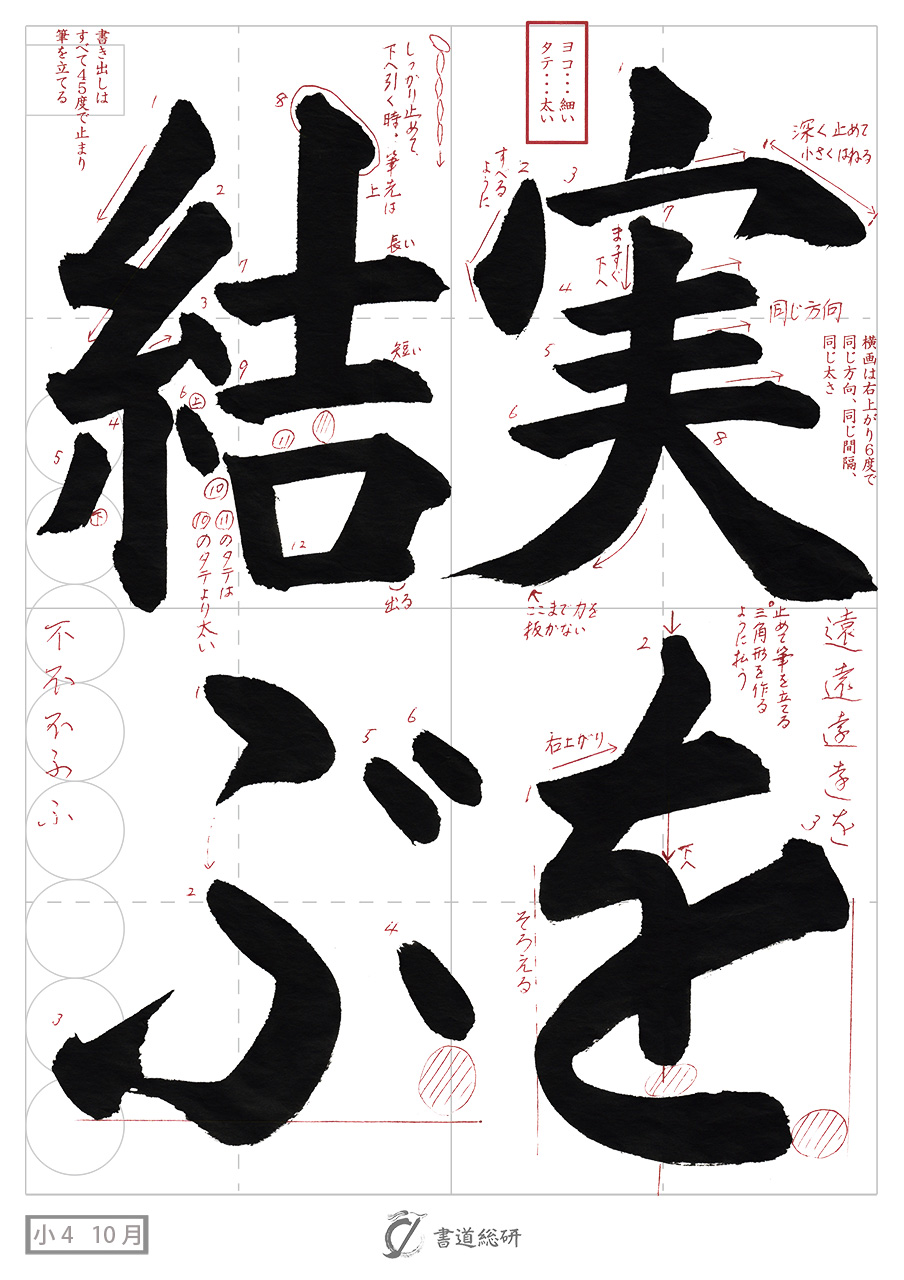 実を
結ぶ
ヨコ・・・細い
タテ・・・太い
深く止めて
小さくはねる
すべる
ように
まっすぐ
下へ
同じ方向
横画は右上がり6度で
同じ方向、同じ間隔、
同じ太さ
1
2
3
4
5
6
7
8
ここまで力を
抜かない
しっかり止めて、
下へ引く時・筆先は
上
書き出しは
すべて45度で止まり
筆を立てる
長い
短い
1
2
3
4
5
6
上
下
7
8
9
⑩
⑪
12
出る
⑪のタテは
⑩のタテより太い
遠
遠
遠
遠
を
止めて筆を立てる
三角形を作る
ように払う
右上がり
下へ
そろえる
1
2
3
不
不
不
ふ
ふ
1
2
3
4
5
6
小4 10月
書道総研